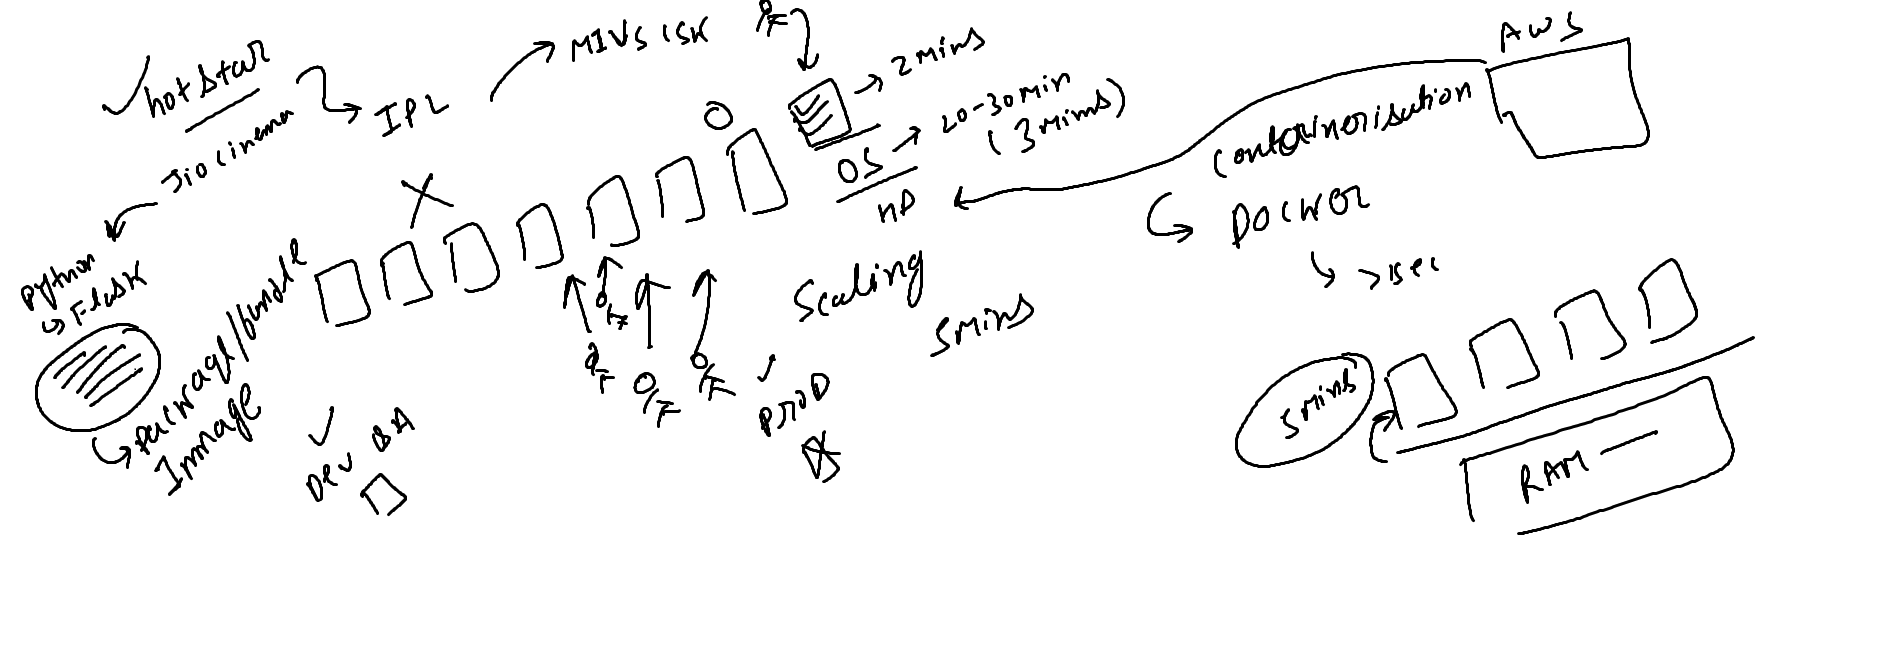 hotstar
Jio cinema
IPL
MI VS CSK
2 mins
OS
20-30 min
(3 mins)
AWS
containerisation
DOCKER
> 1sec
python
Flask
package/bundle
Image
Dev QA
PROD
Scaling
5 mins
5 mins
RAM